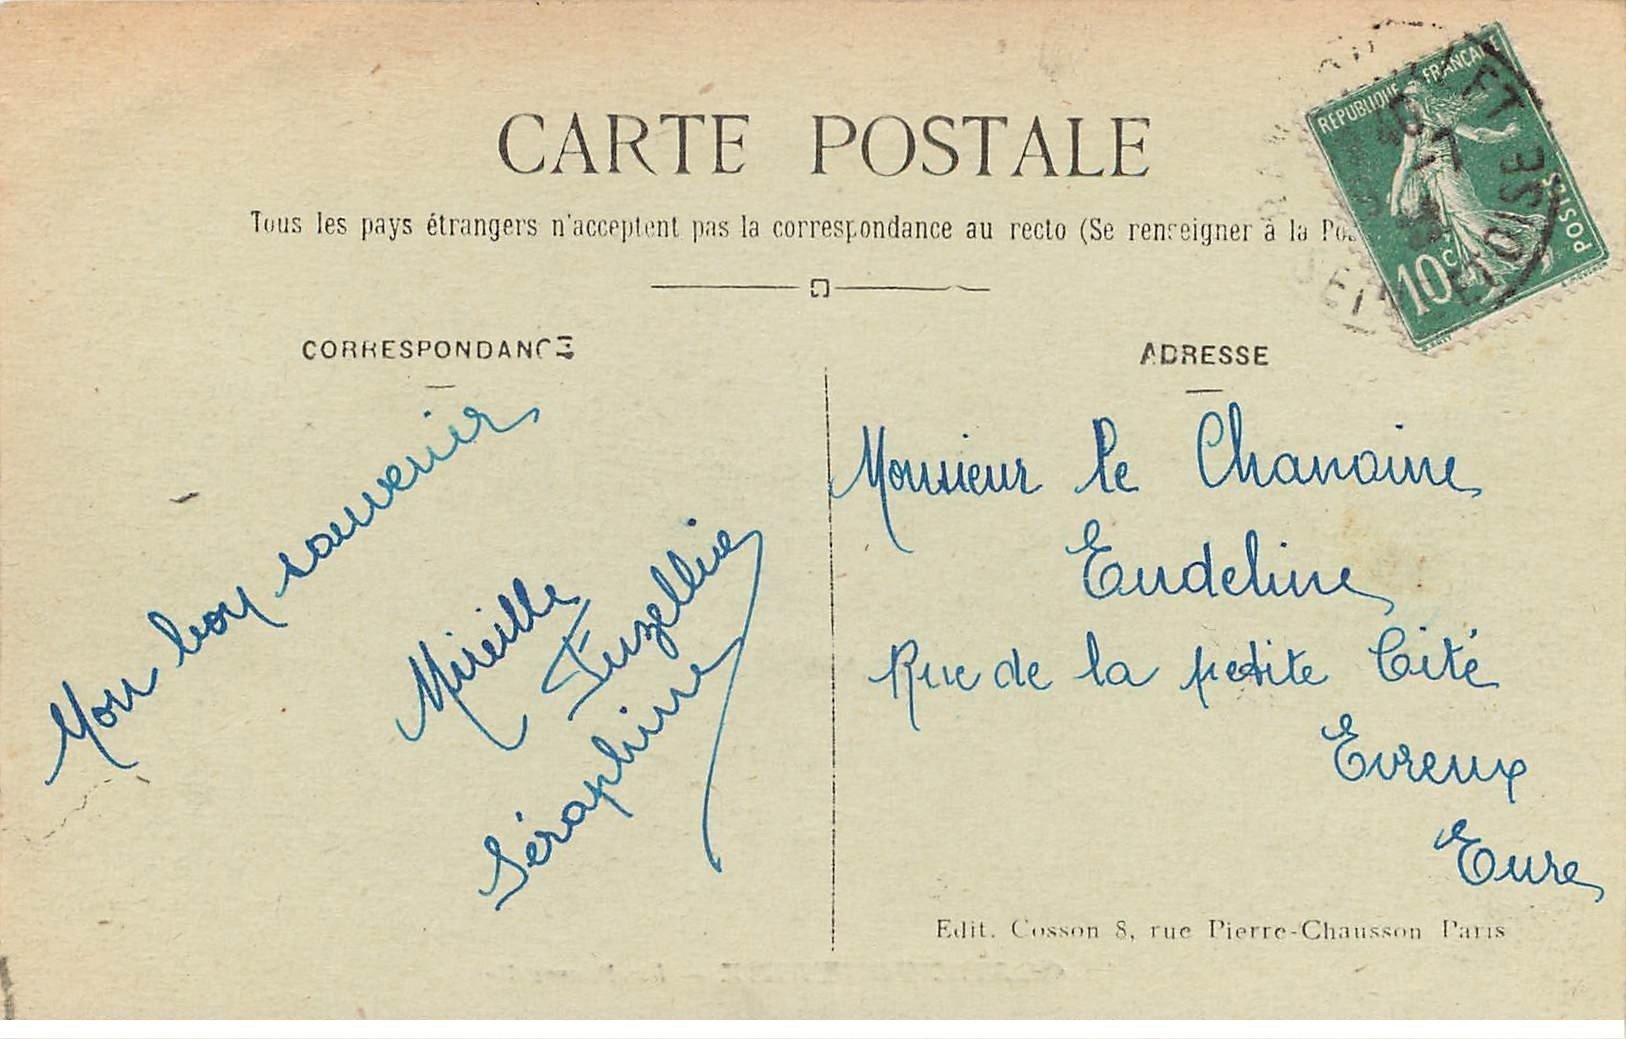 CARTE POSTALE
Tous les pays étrangers n'acceptent pas la correspondance au recto (Se renseigner à la
RÉPUBLIQUE FRANÇAISE
POSTES
10 c
ET OISE
CORRESPONDANCE
ADRESSE
Mon bon souvenir
Mireille
Fuzelline
Séraphine
Monsieur le Chanoine
Eudeline
Rue de la petite Cité
Evreux
Eure
Edit. Cosson 8, rue Pierre-Chausson Paris